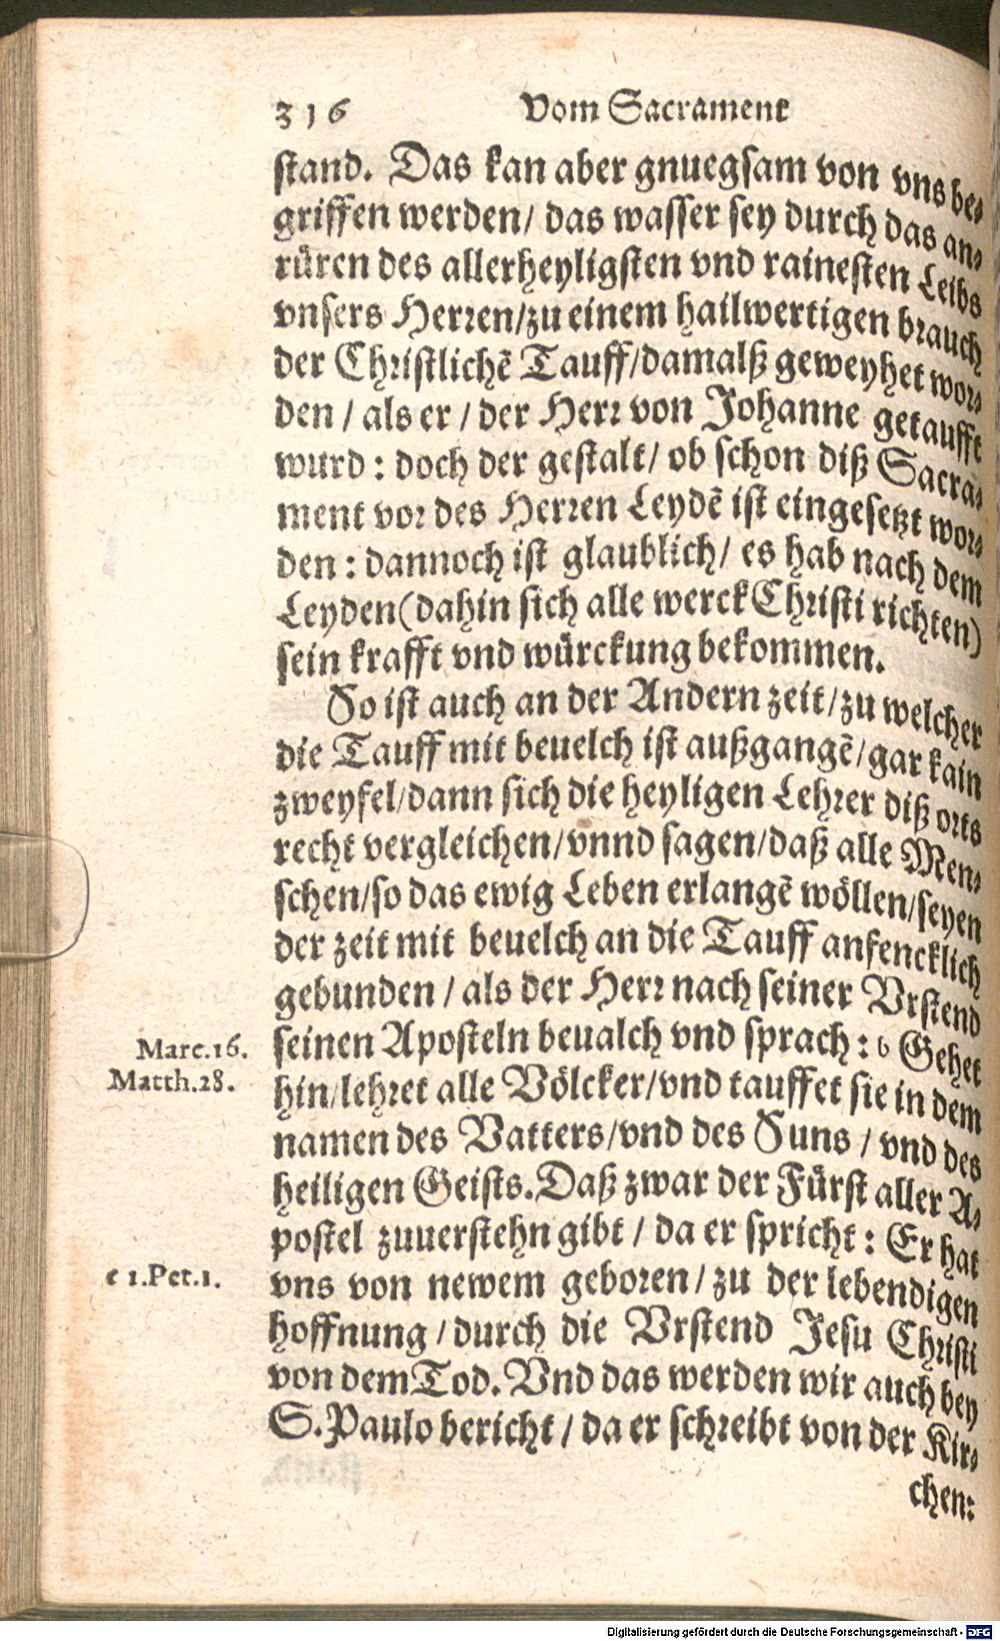 316 Vom Sacrament
stand. Das kan aber gnuegsam von vns be⸗
griffen werden/ das wasser sey durch das an⸗
rüren des allerheyligsten vnd rainesten Leibs
vnsers Herren/zu einem hailwertigen brauch
der Christlichē Tauff/damalß geweyhet wor⸗
den / als er / der Herr von Johanne getaufft
wurd: doch der gestalt/ ob schon diß Sacra⸗
ment vor des Herren Leydē ist eingesetzt wor⸗
den: dannoch ist glaublich/ es hab nach dem
Leyden(dahin sich alle werck Christi richten)
sein krafft vnd würckung bekommen.
So ist auch an der Andern zeit/zu welcher
die Tauff mit beuelch ist außgangē/gar kain
zweyfel/dann sich die heyligen Lehrer diß orts
recht vergleichen/vnnd sagen/daß alle Men⸗
schen/so das ewig Leben erlangē wöllen/seyen
der zeit mit beuelch an die Tauff anfencklich
gebunden / als der Herr nach seiner Vrstend
Marc.16.
Matth.28.
seinen Aposteln beualch vnd sprach: b Gehet
hin/lehret alle Völcker/vnd tauffet sie in dem
namen des Vatters/vnd des Suns / vnd des
heiligen Geists. Daß zwar der Fürst aller A⸗
postel zuuerstehn gibt / da er spricht: Er hat
c 1.Pet.1.
vns von newem geboren/ zu der lebendigen
hoffnung /durch die Vrstend Jesu Christi
von dem Tod. Vnd das werden wir auch bey
S. Paulo bericht / da er schreibt von der Kir⸗
chen:
Digitalisierung gefördert durch die Deutsche Forschungsgemeinschaft - DFG